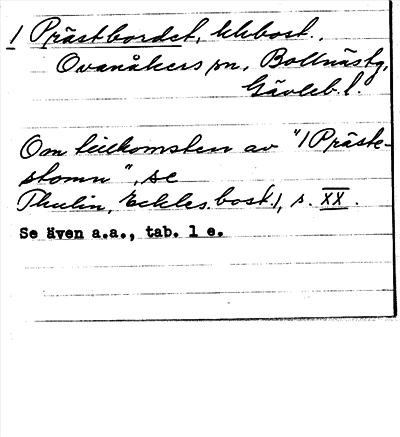 1 Prästbordet, kkbost.,
Ovanåkers sn, Bollnäs fg,
Gävleb. l.
Om tillkomsten av "1 Präste-
stomn", se
Thulin, Eckles. bost. 1, s. XX.
Se även a.a., tab. 1 e.